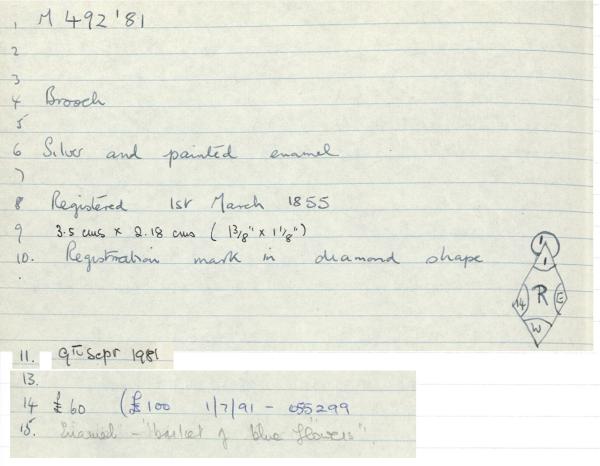 1 M 492 '81
2
3
4 Brooch
5
6 Silver and painted enamel
7
8 Registered 1st March 1855
9 3.5 cms x 2.18 cms ( 1 3/8" x 1 1/8" )
10. Registration mark in diamond shape
1
1
14 R E
W
11. 9th Sept 1981
13.
14 £60 (£100 1/7/91 - 055299
15. Enamel - "basket of blue flowers".